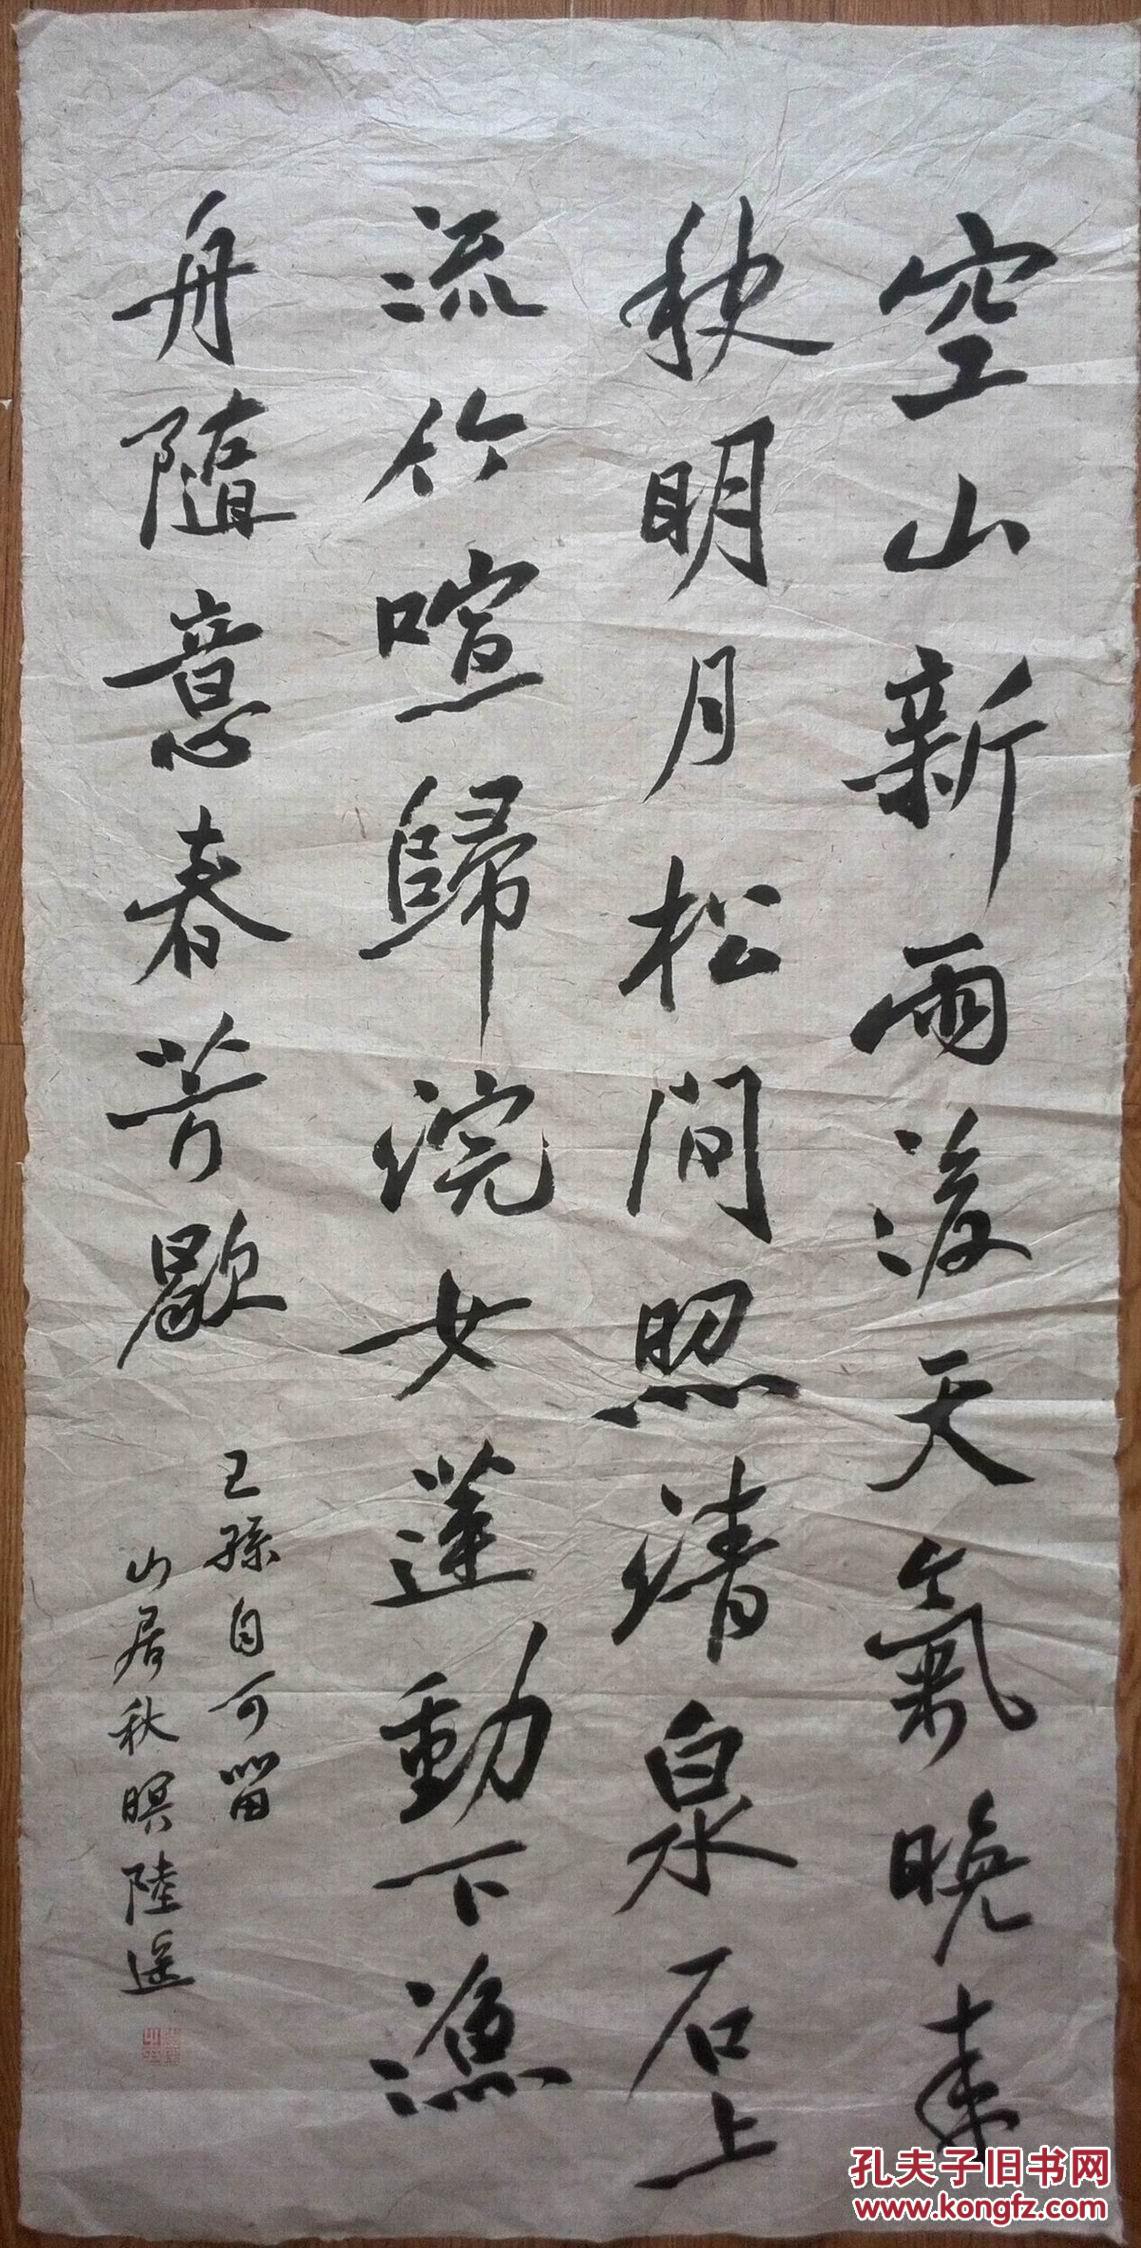 空山新雨後天氣晚來
秋明月松間照清泉石上
流竹喧歸浣女蓮動下漁
舟隨意春芳歇
王孫自可留
山居秋暝陸遥
孔夫子旧书网
www.kongfz.com